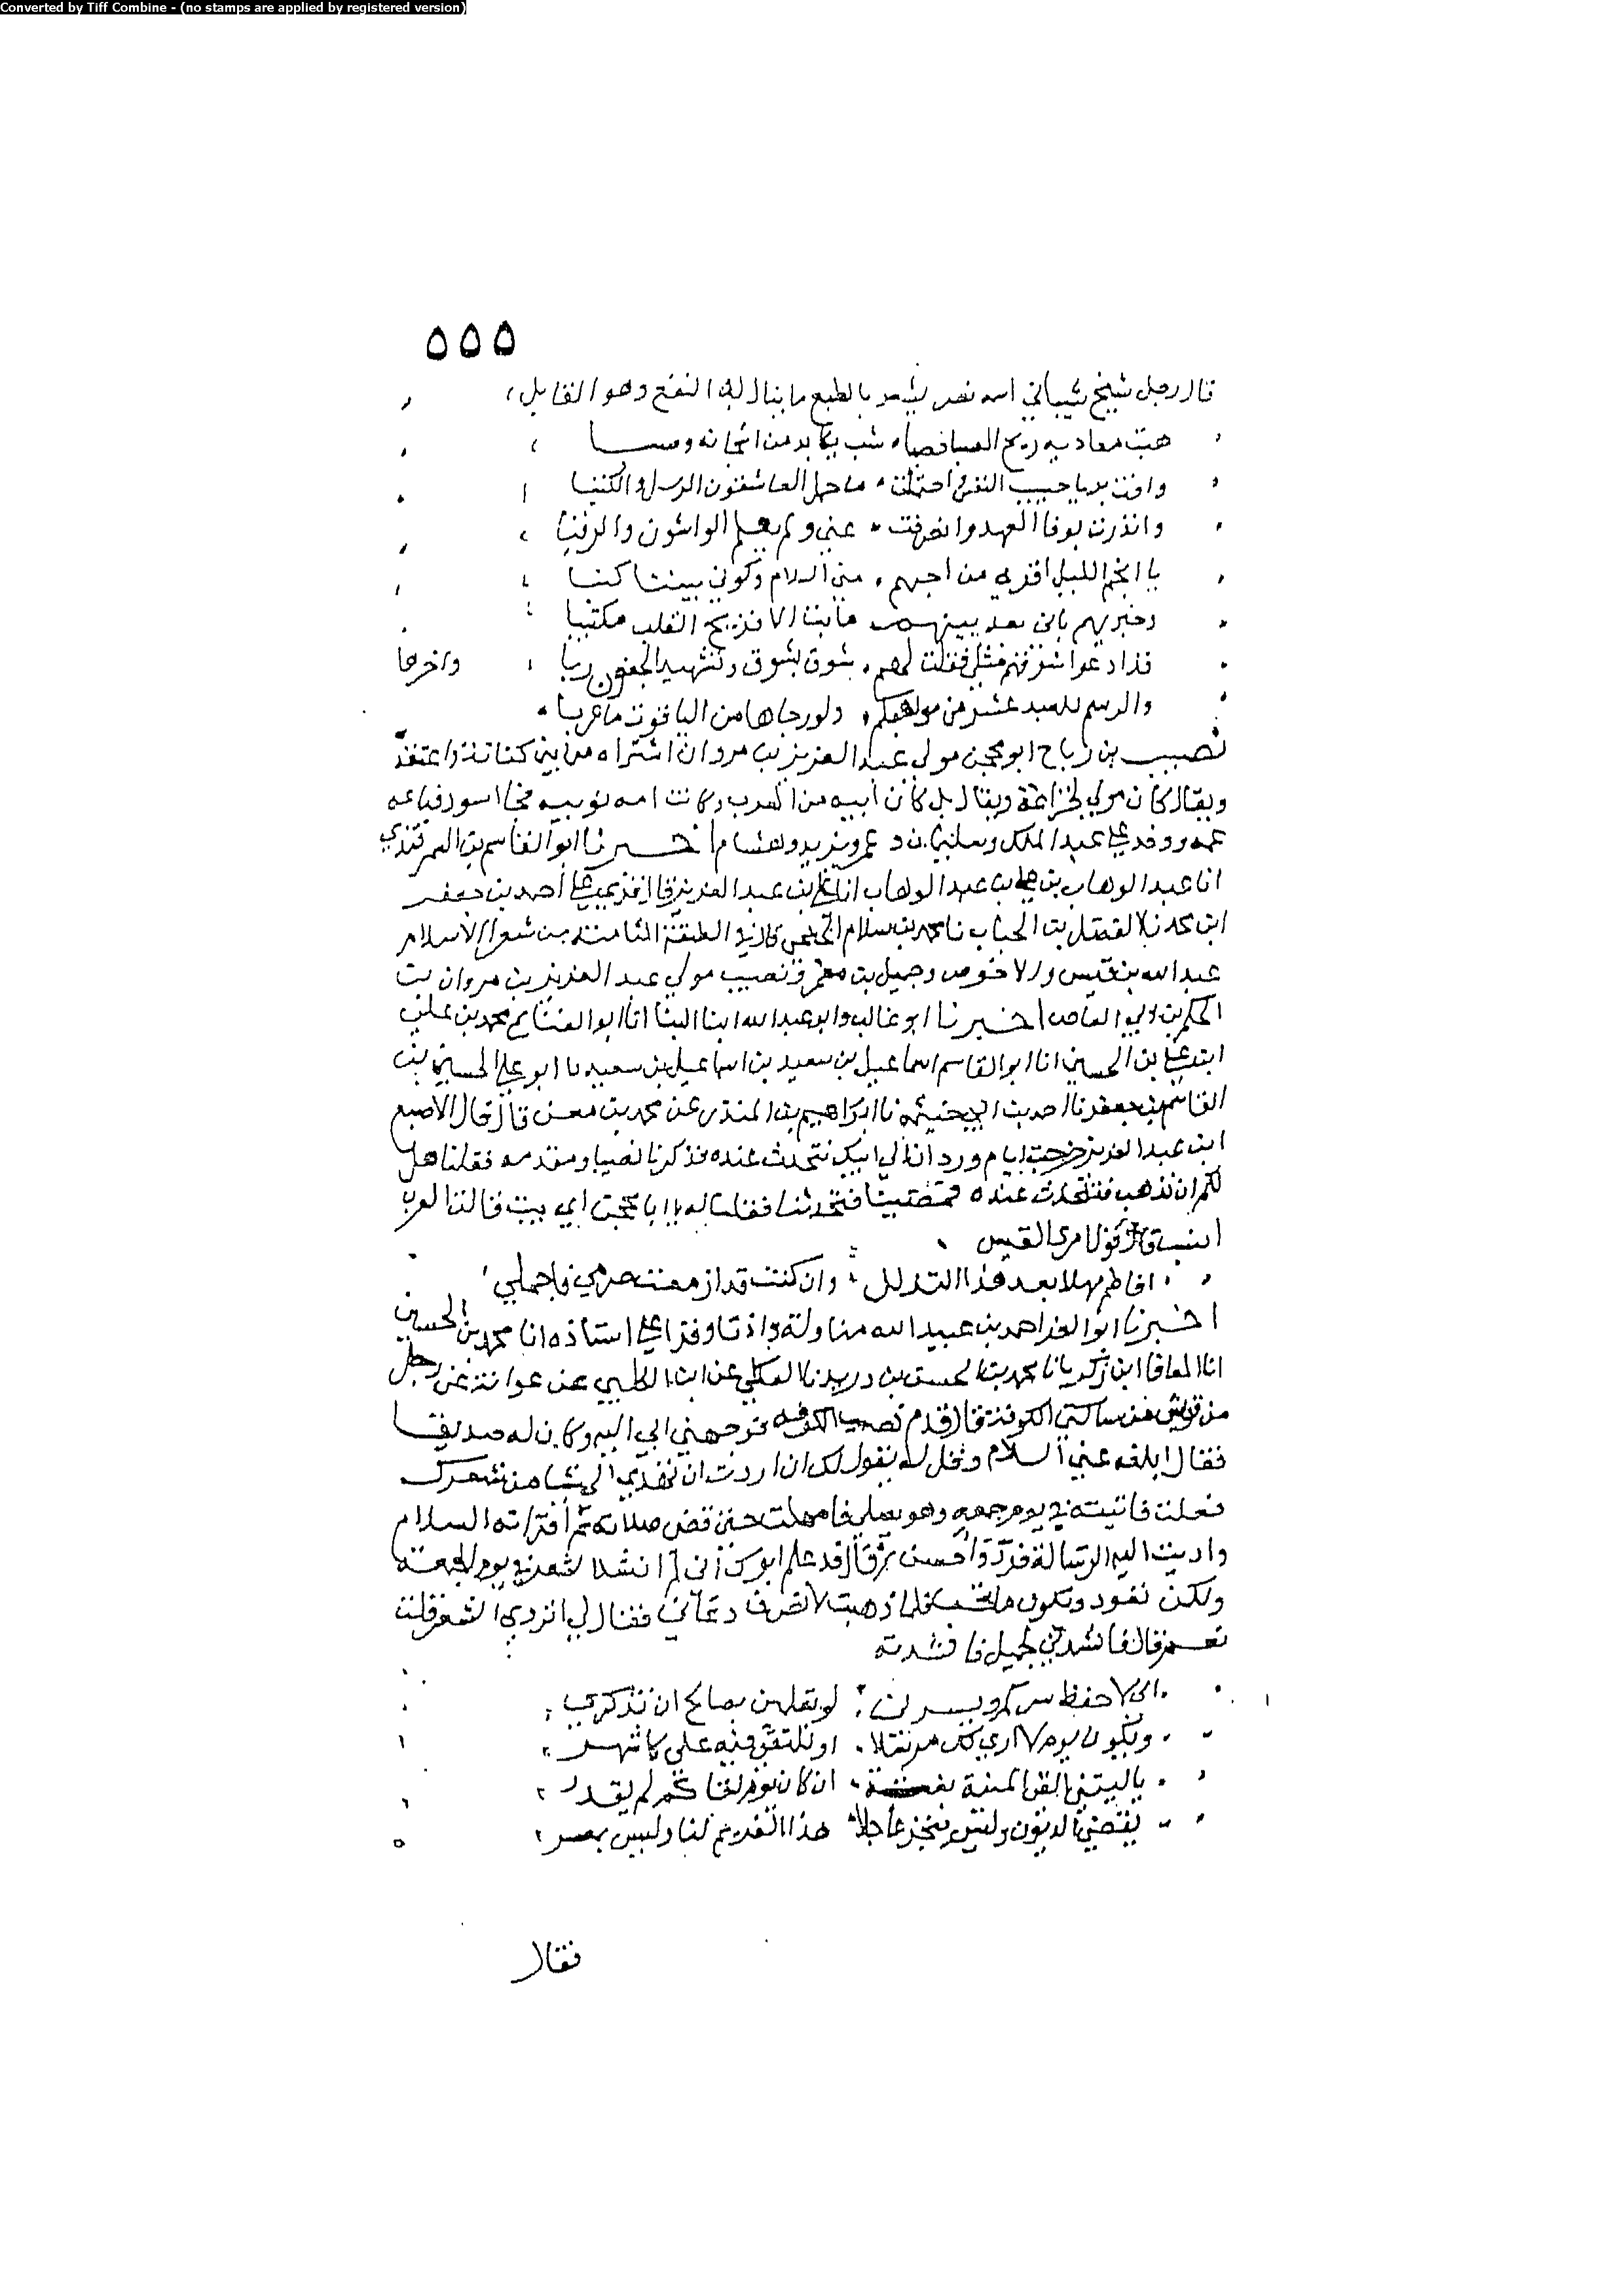 Converted by Tiff Combine - (no stamps are applied by registered version)
٥٥٥
قال رجل شيخ شيباني اسمه نصر يشعر بالطبع ما ينال به النفع وهو القايل
هبت معاديه ريح الصبا فصبا شب يكابد من اشجانه وصبا
وافت بريا حبيب النفس احتملت ما حمل العاشقون الرسل والكتبا
وانذرت بوفا العهد وانصرفت عني ولم يعلم الواشون والرقبا
يا انجم الليل اقري من احبهم مني السلام وكوني بيننا كتبا
وخبريهم باني بعد بينهم ما بت الا قريح القلب مكتيبا
فذا دعوا شوقهم مثلي فقلت لهم شوق بشوق وتشهيد الجفون ربا واخرها
والرسم للعبد عشر من مولهكم ولو رجاها من الياقوت ما غربا
نصيب بن رباح ابو محجن مولى عبد العزيز بن مروان اشتراه من بني كنانة واعتقه
ويقال كان مولى لخزاعة ويقال بل كان ابيه من العرب وكانت امه نوبيه فجا اسود فباعه
عمه ووفد علي عبد الملك وسليمان وعمر ويزيد وهشام اخبرنا ابو القاسم بن السمرقندي
انا عبد الوهاب بن علي بن عبد الوهاب انا علي بن عبد العزيز قال قري علي احمد بن جعفر
ابن محمد نا الفضل بن الحباب نا محمد بن سلام الجمحي قال في الطبقة الثامنة من شعرا الاسلام
عبد الله بن قيس والاحوص وجميل بن معمر ونصيب مولى عبد العزيز بن مروان بن
الحكم بن ابي العاص اخبرنا ابو غالب وابو عبد الله ابنا البنا انا ابو الغنايم محمد بن علي
ابن علي بن الحسين انا ابو القاسم اسماعيل بن سعيد بن اسماعيل بن سعيد نا ابو علي الحسين بن
القاسم بن جعفر نا احمد بن ابي خيثمه نا ابراهيم بن المنذر عن محمد بن معن قال قال الاصبع
ابن عبد العزيز خرجت ايام ورد انا الي ابيك نتحدث عنده فذكرنا نصيبا ومقدمه فقلنا هل
لكم ان نذهب فنتحدث عنده فمضينا فتحدثنا فقلنا له يا ابا محجن اي بيت قالته العرب
انسب قال قول امري القيس
افاطم مهلا بعد هذا التدلل وان كنت قد ازمعت صرمي فاجملي
اخبرنا ابو العز احمد بن عبيد الله مناولة واذنا وقرا علي اسناده انا محمد بن الحسين
انا المعافا ابن زكريا نا محمد بن الحسن بن دريد نا العكلي عن ابن الكلبي عن عوانة عن رجل
من قريش من ساكني الكوفة قال قدم نصيب الكوفه فوجهني ابي اليه وكان له صديقا
فقال ابلغه عني السلام وقل له يقول لك ان اردت ان تهدي الي شيا من شعرك
فعلت فاتيته في يوم جمعه وهو يصلي فامهلت حتى قضى صلاته ثم اقراته السلام
واديت اليه الرسالة فرد واحسن ثم قال قد علم ابوك اني لا انشد الشعر في يوم الجمعة
ولكن نعود ويكون ما تحب فلما ذهبت لانصرف دعاني فقال لي اتروي الشعر قلت
نعم قال فانشدني لجميل فانشدته
اني لاحفظ سركم ويسرني لو تعلمين بصالح ان تذكري
ويكون يوم لا اري لك مرسلا او نلتقي فيه علي كاشهر
ياليتني القى المنية بغتة ان كان يوم لقاكم لم يقدر
يقضى الديون وليس ينجز عاجلا هذا الغريم لنا وليس بمعسر
فقال